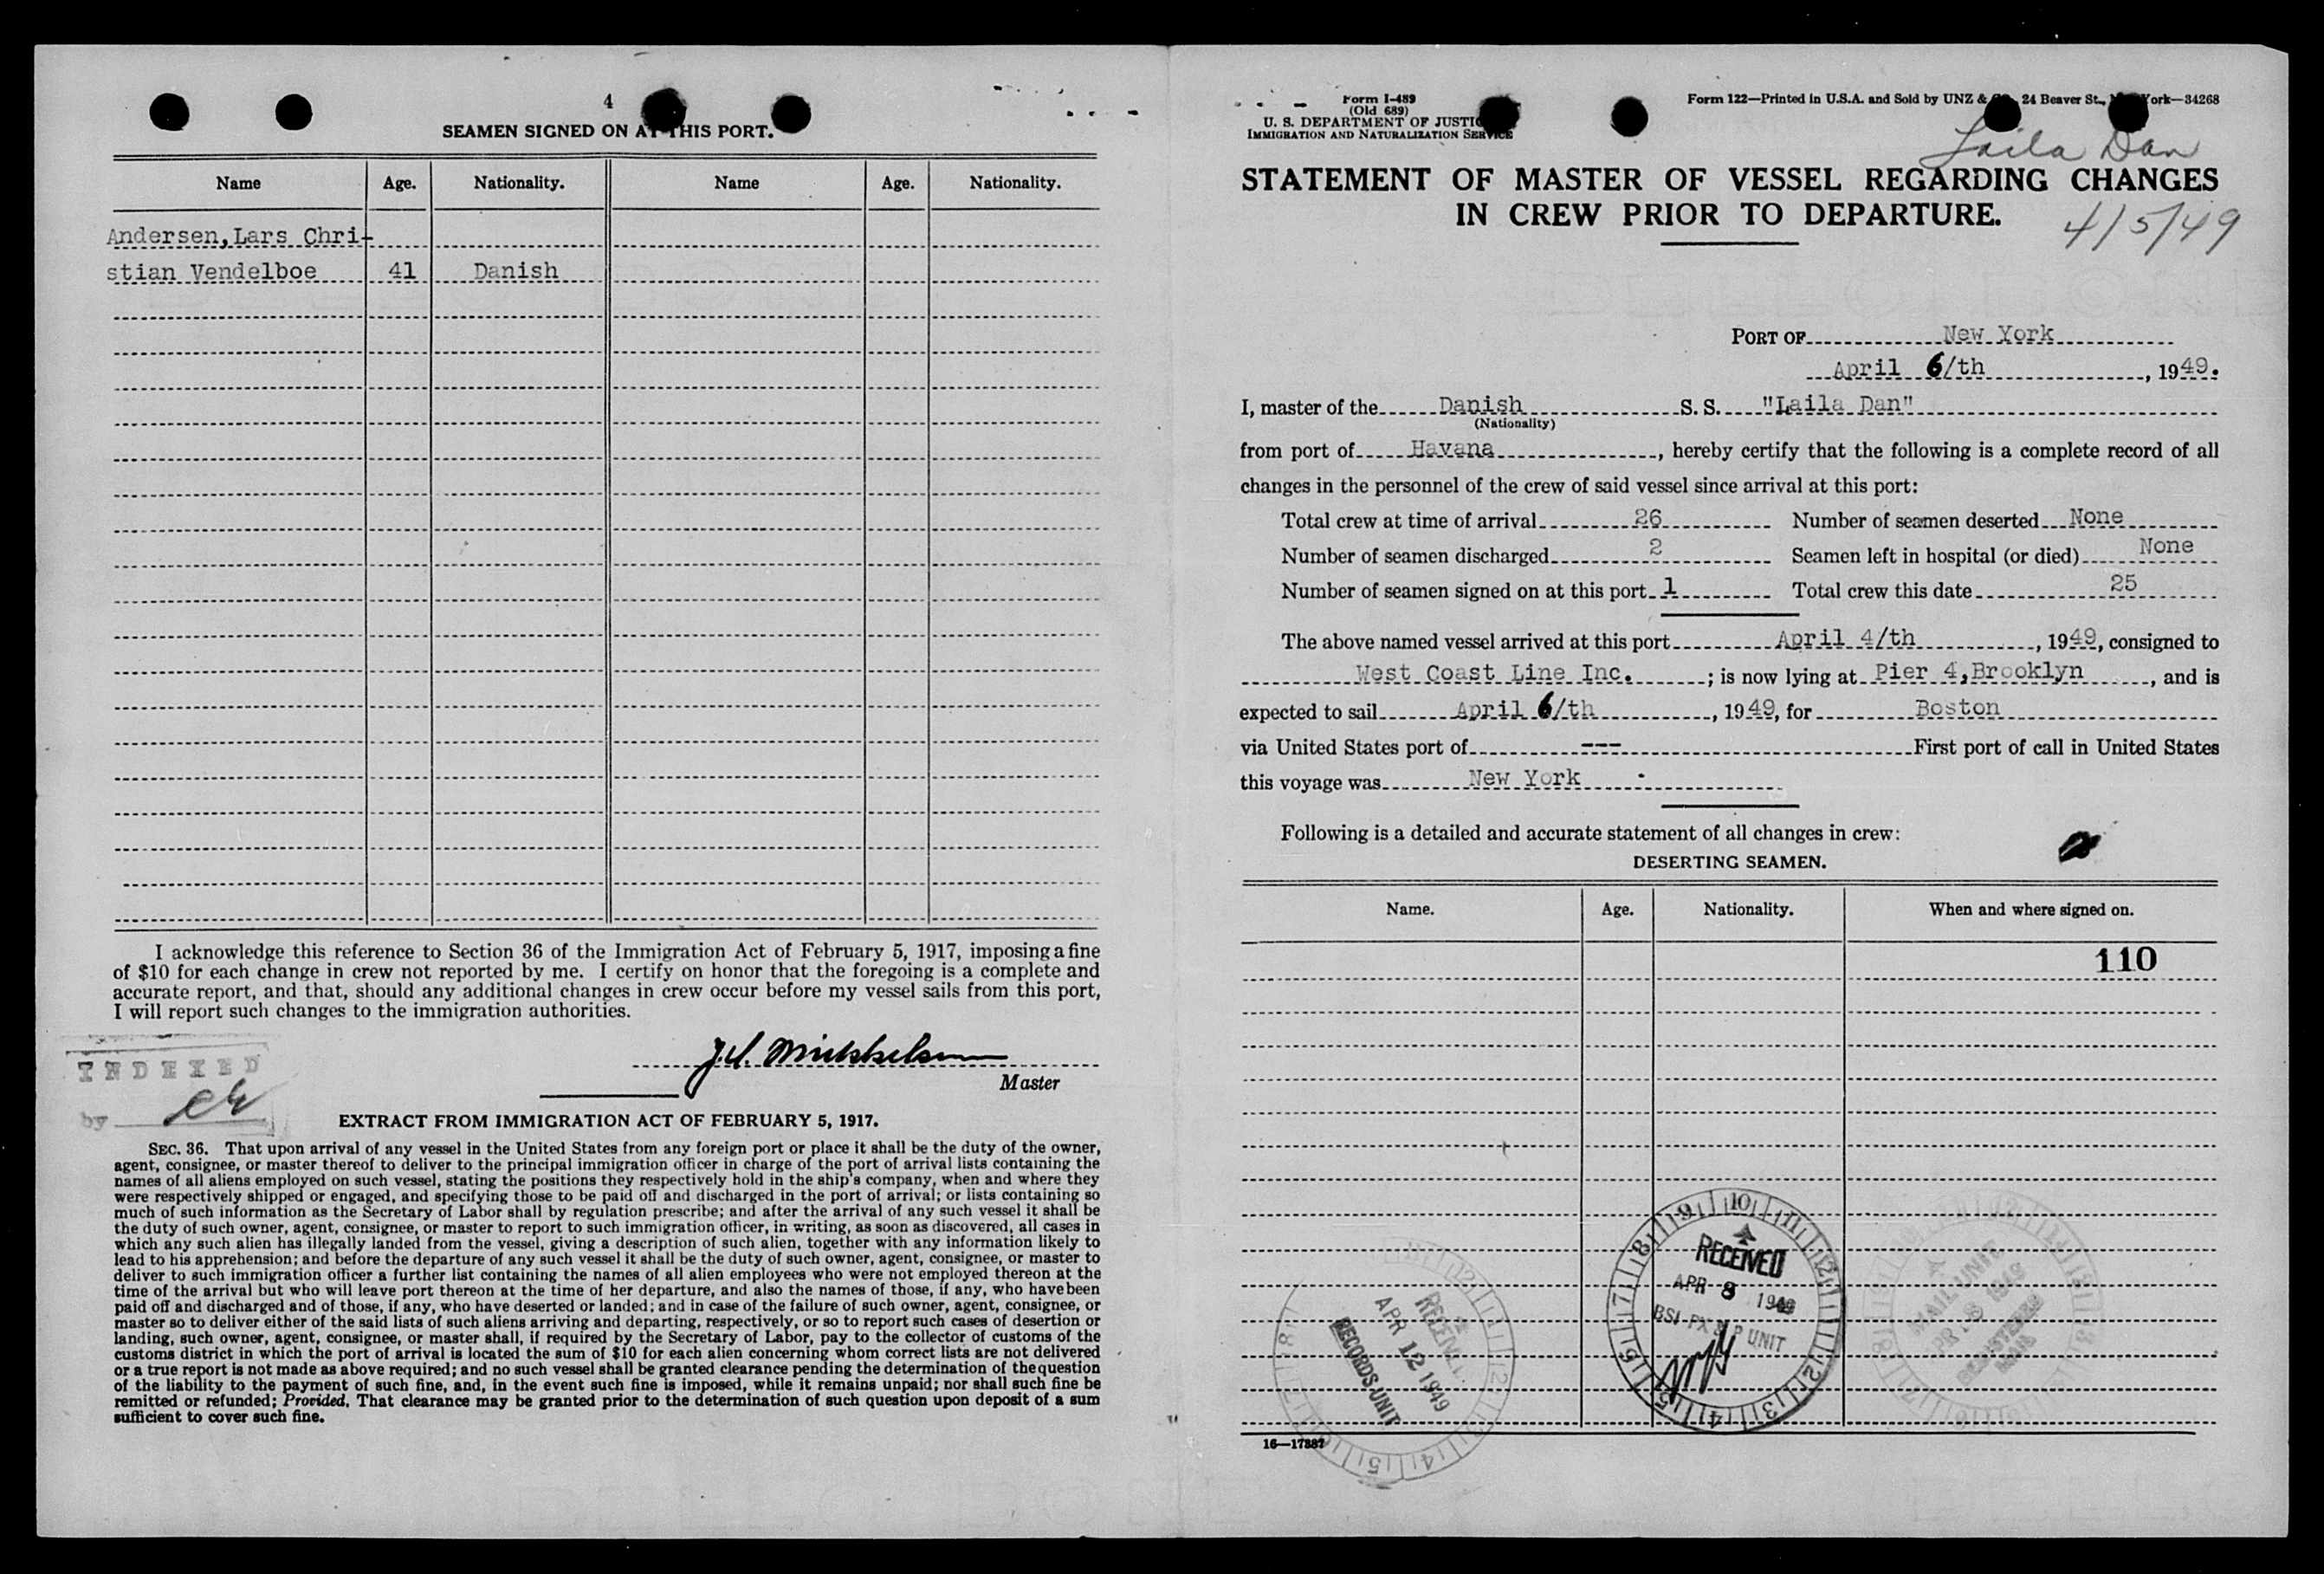 4
SEAMEN SIGNED ON AT THIS PORT.
Name Age. Nationality. Name Age. Nationality.
Andersen, Lars Chri-
stian Vendelboe 41 Danish
I acknowledge this reference to Section 36 of the Immigration Act of February 5, 1917, imposing a fine
of $10 for each change in crew not reported by me. I certify on honor that the foregoing is a complete and
accurate report, and that, should any additional changes in crew occur before my vessel sails from this port,
I will report such changes to the immigration authorities.
INDEXED
by
Master
EXTRACT FROM IMMIGRATION ACT OF FEBRUARY 5, 1917.
SEC. 36. That upon arrival of any vessel in the United States from any foreign port or place it shall be the duty of the owner,
agent, consignee, or master thereof to deliver to the principal immigration officer in charge of the port of arrival lists containing the
names of all aliens employed on such vessel, stating the positions they respectively hold in the ship's company, when and where they
were respectively shipped or engaged, and specifying those to be paid off and discharged in the port of arrival; or lists containing so
much of such information as the Secretary of Labor shall by regulation prescribe; and after the arrival of any such vessel it shall be
the duty of such owner, agent, consignee, or master to report to such immigration officer, in writing, as soon as discovered, all cases in
which any such alien has illegally landed from the vessel, giving a description of such alien, together with any information likely to
lead to his apprehension; and before the departure of any such vessel it shall be the duty of such owner, agent, consignee, or master to
deliver to such immigration officer a further list containing the names of all alien employees who were not employed thereon at the
time of the arrival but who will leave port thereon at the time of her departure, and also the names of those, if any, who have been
paid off and discharged and of those, if any, who have deserted or landed; and in case of the failure of such owner, agent, consignee, or
master so to deliver either of the said lists of such aliens arriving and departing, respectively, or so to report such cases of desertion or
landing, such owner, agent, consignee, or master shall, if required by the Secretary of Labor, pay to the collector of customs of the
customs district in which the port of arrival is located the sum of $10 for each alien concerning whom correct lists are not delivered
or a true report is not made as above required; and no such vessel shall be granted clearance pending the determination of the question
of the liability to the payment of such fine, and, in the event such fine is imposed, while it remains unpaid; nor shall such fine be
remitted or refunded; Provided, That clearance may be granted prior to the determination of such question upon deposit of a sum
sufficient to cover such fine.
Form I-489
(Old 689)
U. S. DEPARTMENT OF JUSTICE
IMMIGRATION AND NATURALIZATION SERVICE
Form 122—Printed in U.S.A. and Sold by UNZ & 24 Beaver St., York—34268
Laila Dan
STATEMENT OF MASTER OF VESSEL REGARDING CHANGES
IN CREW PRIOR TO DEPARTURE.
4/5/49
PORT OF New York
April 6/th, 1949.
I, master of the Danish S. S. "Laila Dan"
(Nationality)
from port of Havana, hereby certify that the following is a complete record of all
changes in the personnel of the crew of said vessel since arrival at this port:
Total crew at time of arrival 26 Number of seamen deserted None
Number of seamen discharged 2 Seamen left in hospital (or died) None
Number of seamen signed on at this port 1 Total crew this date 25
The above named vessel arrived at this port April 4/th, 1949, consigned to
West Coast Line Inc.; is now lying at Pier 4, Brooklyn, and is
expected to sail April 6/th, 1949, for Boston
via United States port of --- First port of call in United States
this voyage was New York
Following is a detailed and accurate statement of all changes in crew:
DESERTING SEAMEN.
Name. Age. Nationality. When and where signed on.
110
RECEIVED
APR 12 1949
RECORDS UNIT
RECEIVED
APR 8 1949
UNIT
MAIL UNIT
1949
REGISTERED
MAIL
16—17887